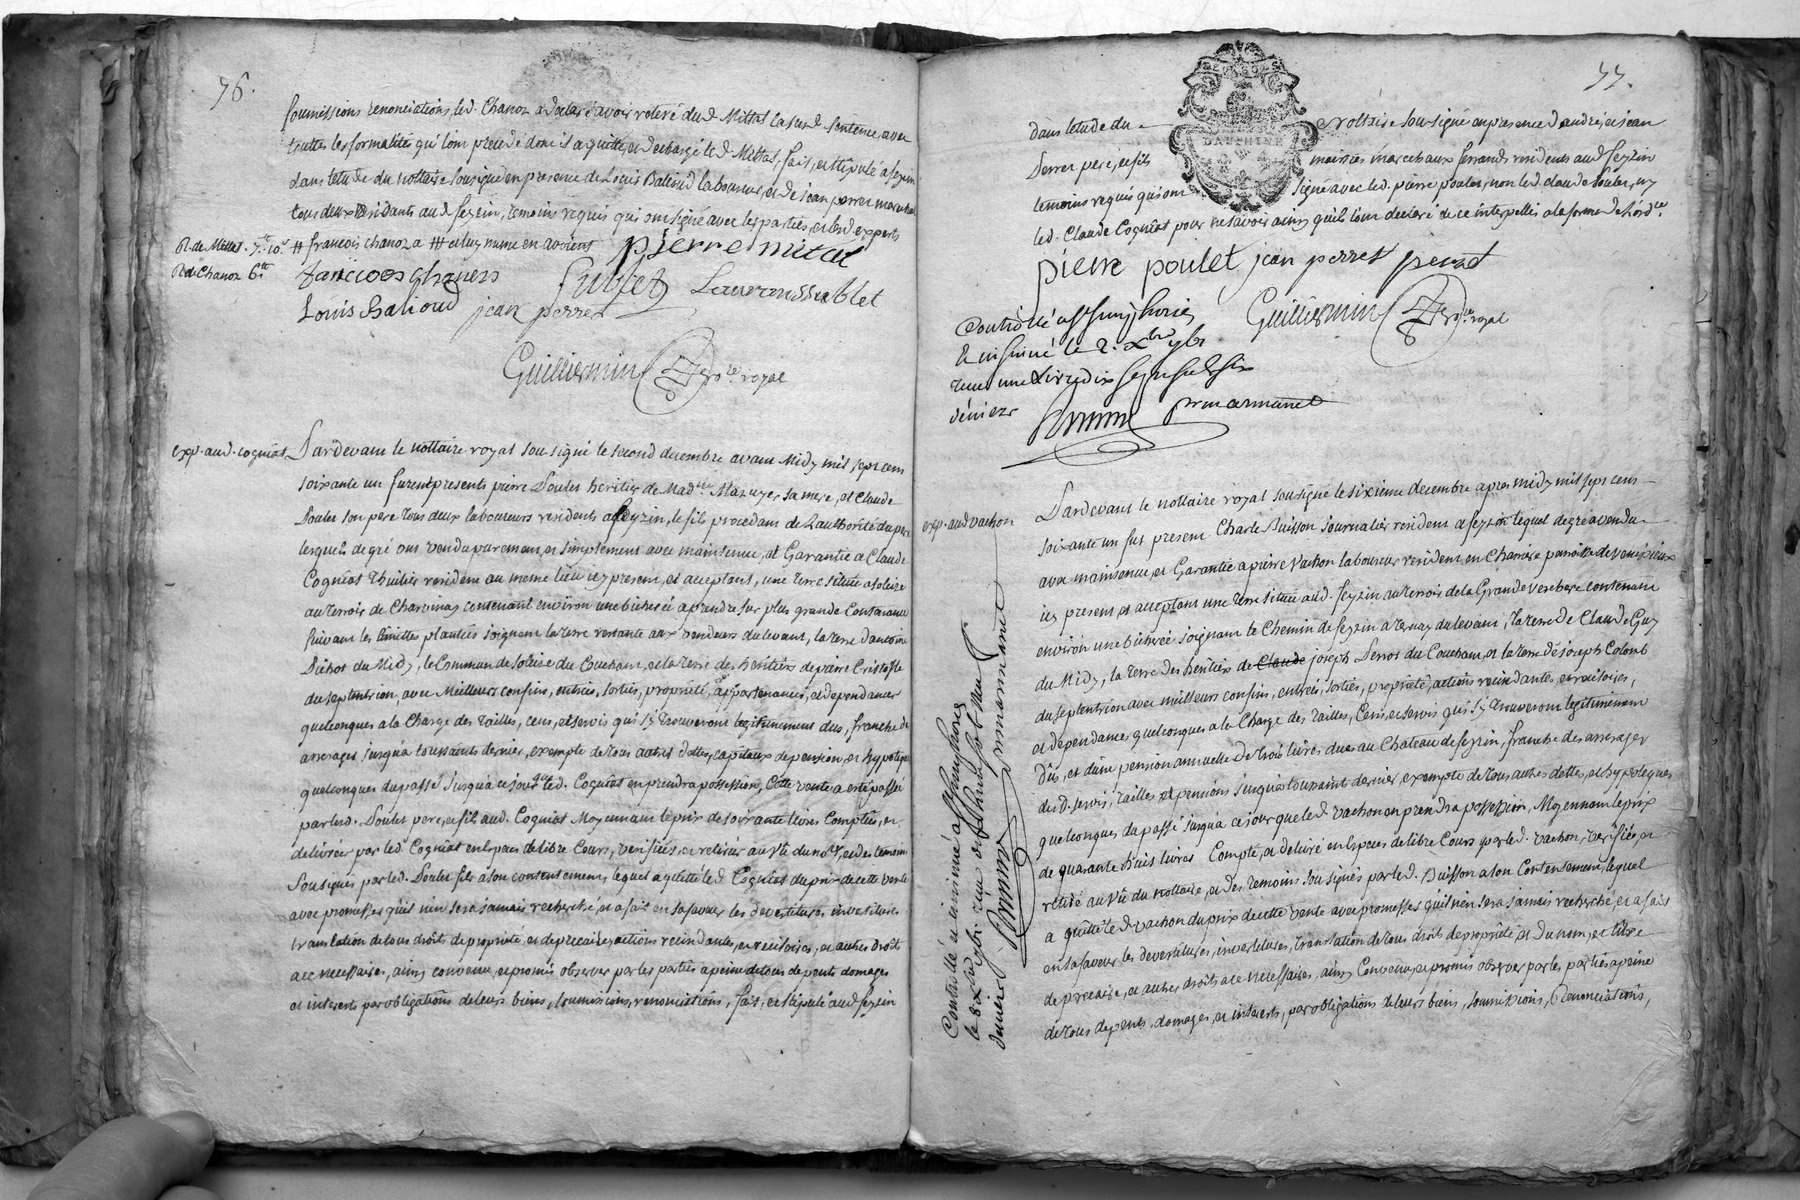 76.
soumissions renonciations, led. Chanoz a declaré avoir retiré dud Mittal lasusd. sentence avec
touttes les formalités qui l'ont precedé dont il a quitté, et dechargé led. Mittal, fait, et stipulé a seyzin
dans l'etude du nottaire sousigné en presence de Louis Balioud laboureur, et de jean perret marechal
tous deux residants aud. seyzin, temoins requis qui ont signé avec les parties, et lesd experts
R. de Mittal. 7.tt 10.s # françois chanoz a # et luy meme en avoient pierre mital
R. de Chanoz 6.tt françoes chanoz Sublet Laurans sublet
Louis balioud jean perret
Guilliermin No.re royal
exp. aud. cogniat Pardevant le nottaire royal sousigné le second decembre avant Midy mil sept cent
soixante un furent presents pierre Poulet heritier de Mad.ne Mazuyer sa mere, et Claude
Poulet son pere tous deux laboureurs residents a seyzin, le fils procedant de l'authorité du pere
lesquels de gré ont vendu purement, et simplement avec maintenue, et Garantie a Claude
Cogniat Thuilier resident au meme lieu icy present, et acceptant, une terre située a solaize
au terroir de Charvinay contenant environ une bicherée a prendre sur plus grande Contenance
suivant les limittes plantées joignant la terre restante aux vendeurs du levant, la terre d'antoine
Pichot du Midy, le Commun de solaize du Couchant, et la terre des heritiers de pierre Cristofle
du septentrion, avec Meilleurs confins, entrées, sorties, propriété, appartenances, et dependances
quelconques a la Charge des tailles, cens, et servis qui s'y trouveront legitimement dus, franche des
arrerages jusqu'a toussaints dernier, exempte de tous autres dettes, capitaux de pension, et hypoteques
quelconques du passé jusqu'a ce jour que led. Cogniat en prendra possession, Cette vente a eté passée
par lesd. Poulet pere, et fils aud. Cogniat Moyennant le prix de soixante livres Comptées, et
delivrées par led. Cogniat en especes de libre Cours, verifiées, et retirées au vû du no.re, et des temoins
sousignés par led. Poulet fils a son contentement, lequel a quitté led Cogniat du prix de cette vente
avec promesses qu'il n'en sera jamais recherché, et a fait en sa faveur les devestitures, investitures
translation de tous droits de propriété, et de precaire, actions rescindantes, et rescisoires, et autres droits
a ce necessaires, ainsy convenu, et promis observer par les parties a peine de tous depents domages
et interets par obligations de leurs biens, soumissions, renonciations, fait, et stipulé aud seyzin
77.
DAUPHINE
dans letude du nottaire sousigné en presence d'andré, et jean
Perret pere, et fils maitres marechaux ferrands residents aud seyzin
temoins requis qui ont signé avec led. pierre poulet, non led. claude Poulet, ny
led. Claude Cogniat pour ne savoir ainsy qu'ils l'ont declaré de ce interpellés a la forme de l'ord.ce
pierre poulet jean perret perret
Guilliermin No.re royal
Controllé a st simphorien
et insinué le 2. Xbre 1761
reçu une Livre dix sept sols six
deniers
pour armanet
exp. aud vachon Pardevant le nottaire royal sousigné le sixieme decembre apres midy mil sept cens
soixante un fut present Charle Buisson journalier resident a seyzin lequel de gré a vendu
avec maintenue, et Garantie a pierre Vachon laboureur resident en Charréze parroisse de venissieux
icy present, et acceptant une terre située aud. seyzin au terroir de la Grande verchere contenant
environ une bicherée joignant le Chemin de seyzin a ternay du levant, la terre de Claude Guy
du Midy, la terre des heritiers de Claude joseph Perrot du Couchant, et la terre de joseph Colomb
du septentrion avec meilleurs confins, entrées, sorties, propriété, actions rescindantes, et rescisoires,
et dependances quelconques a la Charge des tailles, Cens, et servis qui s'y trouveront legitimement
dûs, et d'une pension annuelle de trois livres dues au Chateau de seyzin, franche des arrerages
desd. servis, tailles et pensions jusqu'a toussaint dernier exempte de tous autres dettes, et hypoteques
quelconques du passé jusqu'a ce jour que led vachon en prendra possession, Moyennant le prix
de quarante huit livres Compté, et delivré en especes de libre Cours par led. vachon, verifiés, et
retiré au vû du nottaire, et des temoins sousignés par led. Buisson a son Contentement, lequel
a quitté led vachon du prix de cette vente avec promesses qu'il n'en sera jamais recherché, et a fait
en sa faveur les devestitures, investitures, translation de tous droits de propriété, et du nom, et titre
de precaire, et autres droits a ce necessaires, ainsy Convenu, et promis observer par les parties a peine
de tous depents, domages, et interets, par obligations de leurs biens, soumissions, renonciations,
Controllé et insinué a st simphorien
le 8 Xbre 1761. reçu
deniers
armanet